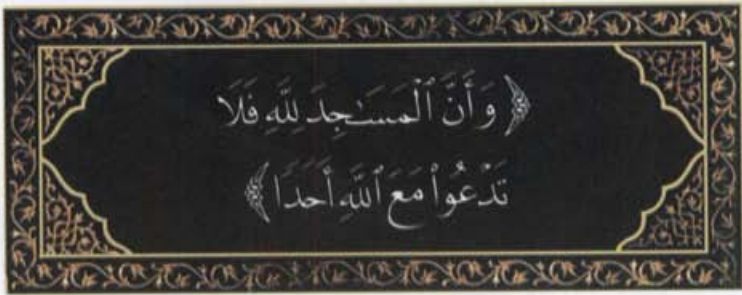 ﴿ وَأَنَّ ٱلْمَسَٰجِدَ لِلَّهِ فَلَا
تَدْعُوا۟ مَعَ ٱللَّهِ أَحَدًا ﴾